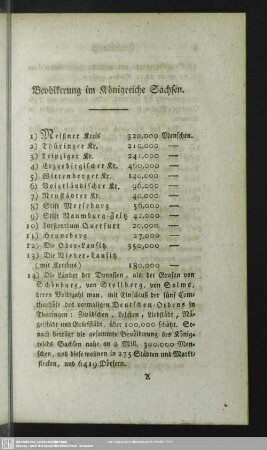 Bevölkerung im Königreiche Sachsen.
1) Meißner Kreis 320,000 Menschen.
2) Thüringer Kr. 210,000 —
3) Leipziger Kr. 241,000 —
4) Erzgebirgischer Kr. 460,000 —
5) Wittenberger Kr. 140,000 —
6) Voigtländischer Kr. 96,000 —
7) Neustädter Kr. 40,000 —
8) Stift Merseburg 36,000 —
9) Stift Naumburg-Zeitz 42,000 —
10) Fürstenthum Querfurt 20,000 —
11) Henneberg 27,000 —
12) Die Ober-Lausitz 350,000 —
13) Die Nieder-Lausitz
(mit Kotbus) 180,000 —
14) Die Länder der Dynasten, als der Grafen von
Schönburg, von Stollberg, von Solms,
deren Volkszahl man, mit Einschluß der fünf Com-
thurhöfe des vormaligen Deutschen-Ordens in
Thüringen: Zwätschen, Lehsten, Liebstädt, Nä-
gelstädt und Griefstädt, über 100,000 schätzt. So-
nach beträgt die gesammte Bevölkerung des König-
reichs Sachsen nahe an 2 Mill. 300,000 Men-
schen, und diese wohnen in 275 Städten und Markt-
flecken, und 6419 Dörfern.
A